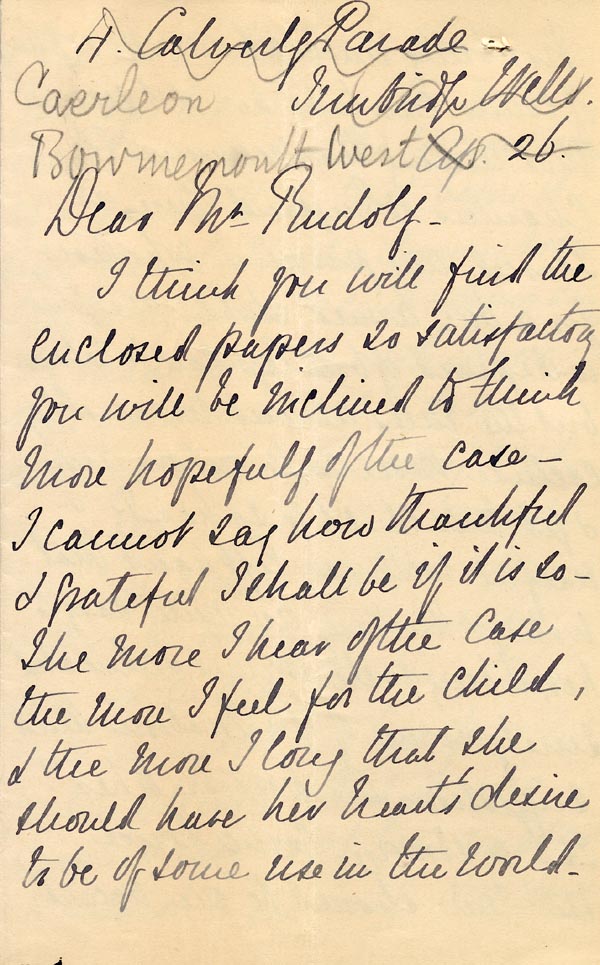 4. Calverly Parade
Caerleon Tunbridge Wells.
Bournemouth West Ap. 26.
Dear Mr Rudolf -
I think you will find the
enclosed papers so satisfactory
you will be inclined to think
more hopefully of the case -
I cannot say how thankful
& grateful I shall be if it is so -
The more I hear of the Case
the more I feel for the child,
& the more I long that she
should have her heart's desire
to be of some use in the world -